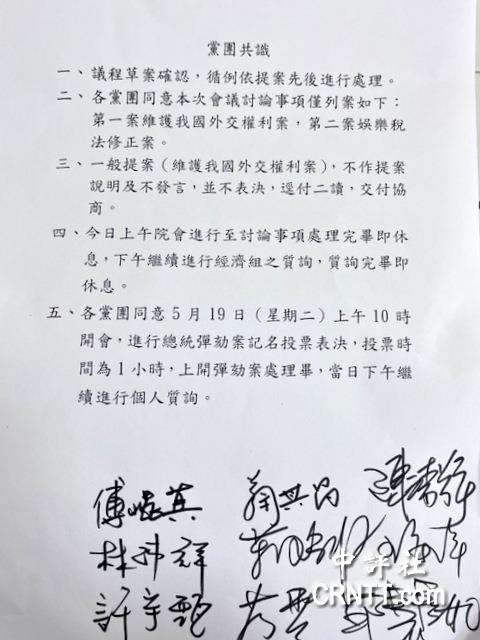 黨團共識
一、議程草案確認，循例依提案先後進行處理。
二、各黨團同意本次會議討論事項僅列案如下：
第一案維護我國外交權利案，第二案娛樂稅
法修正案。
三、一般提案（維護我國外交權利案），不作提案
說明及不發言，並不表決，逕付二讀，交付協
商。
四、今日上午院會進行至討論事項處理完畢即休
息，下午繼續進行經濟組之質詢，質詢完畢即
休息。
五、各黨團同意 5 月 19 日（星期二）上午 10 時
開會，進行總統彈劾案記名投票表決，投票時
間為 1 小時，上開彈劾案處理畢，當日下午繼
續進行個人質詢。
傅崐萁
林沛祥
許宇甄
中評社
CRNTT.com